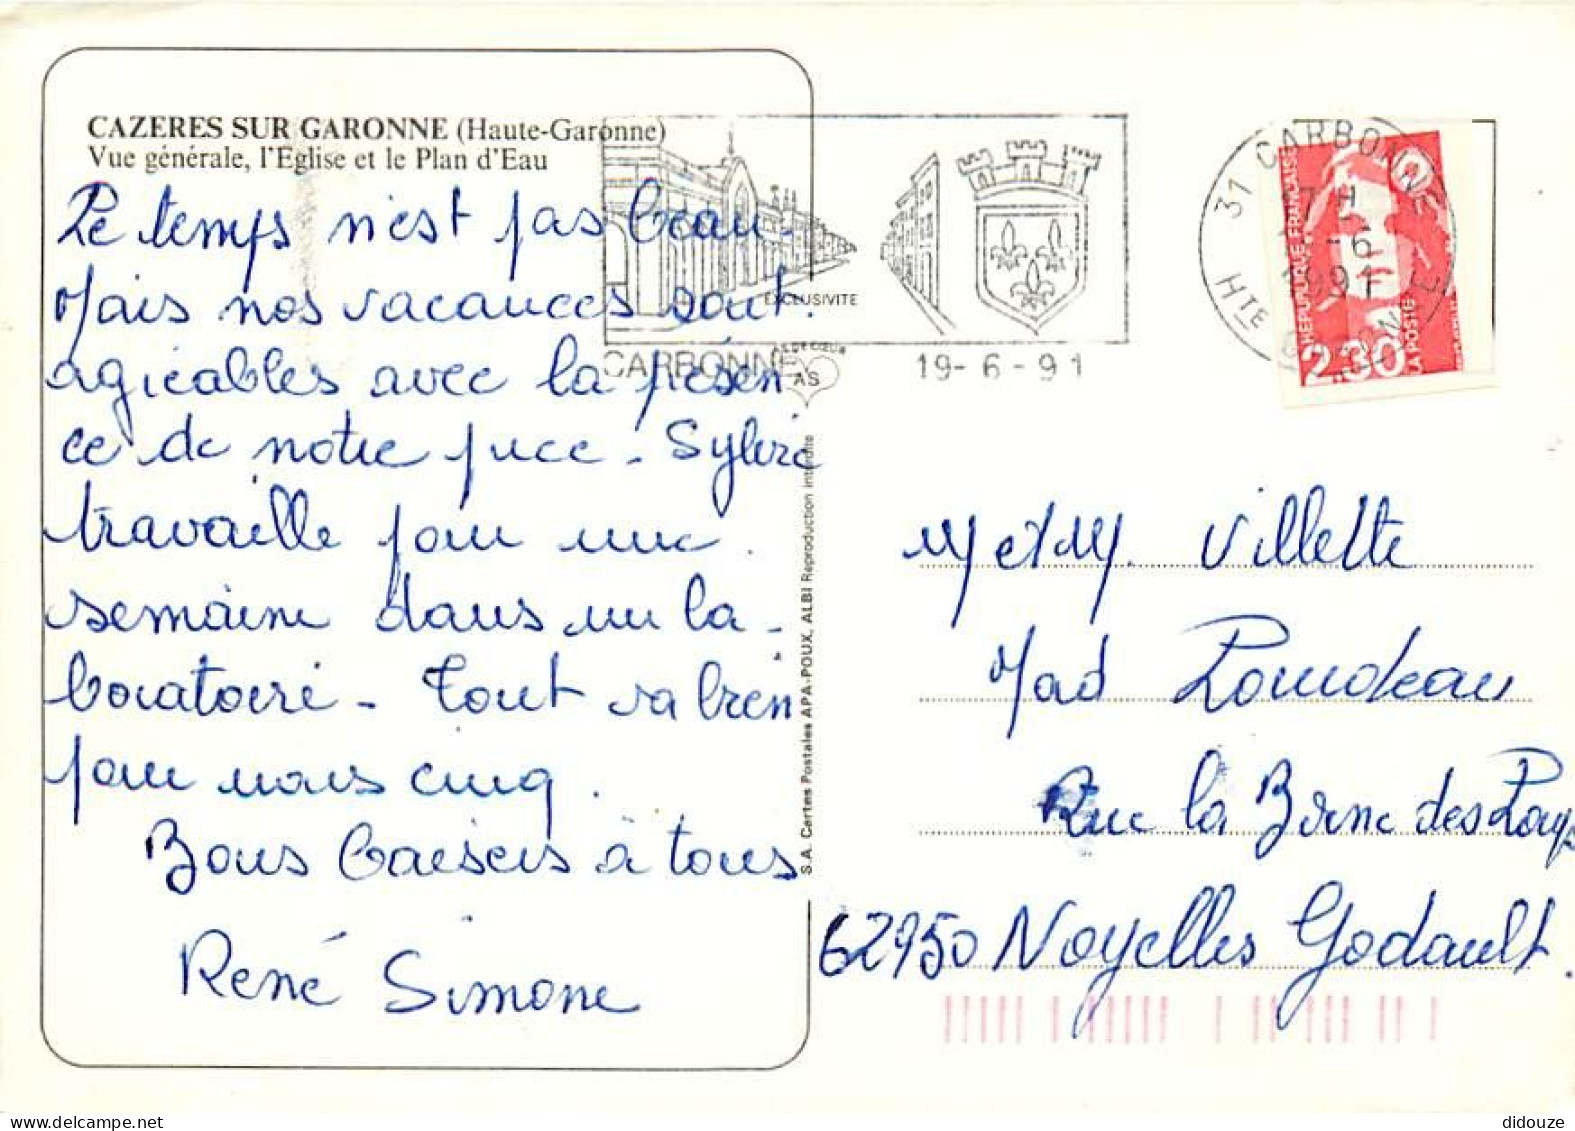 CAZERES SUR GARONNE (Haute-Garonne)
Vue générale, l'Eglise et le Plan d'Eau
Le temps n'est pas beau -
Mais nos vacances sont
agréables avec la présen
ce de notre puce - Sylvie
travaille pour une
semaine dans un la -
boratoire - Tout va bien
pour nous cinq.
Bons baisers à tous
René Simone
EXCLUSIVITE
AS DE CŒUR
AS
S.A. Cartes Postales APA-POUX, ALBI Reproduction interdite
CARBONNE
19-6-91
31 CARBONNE
Hte GARONNE
-6
1991
REPUBLIQUE FRANÇAISE
2,30
LA POSTE
M et M. Villette
Rue la Borne des Loups
62950 Noyelles Godault.
didouze